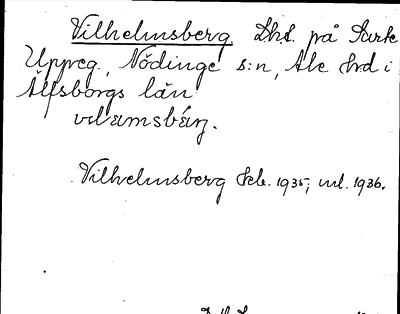 Vilhelmsberg Lht. på Surte
Uppreg., Nödinge s:n, Ale hrd i
Älfsborgs län
vilamsbärj.
Vilhelmsberg Skb. 1935; md. 1936.